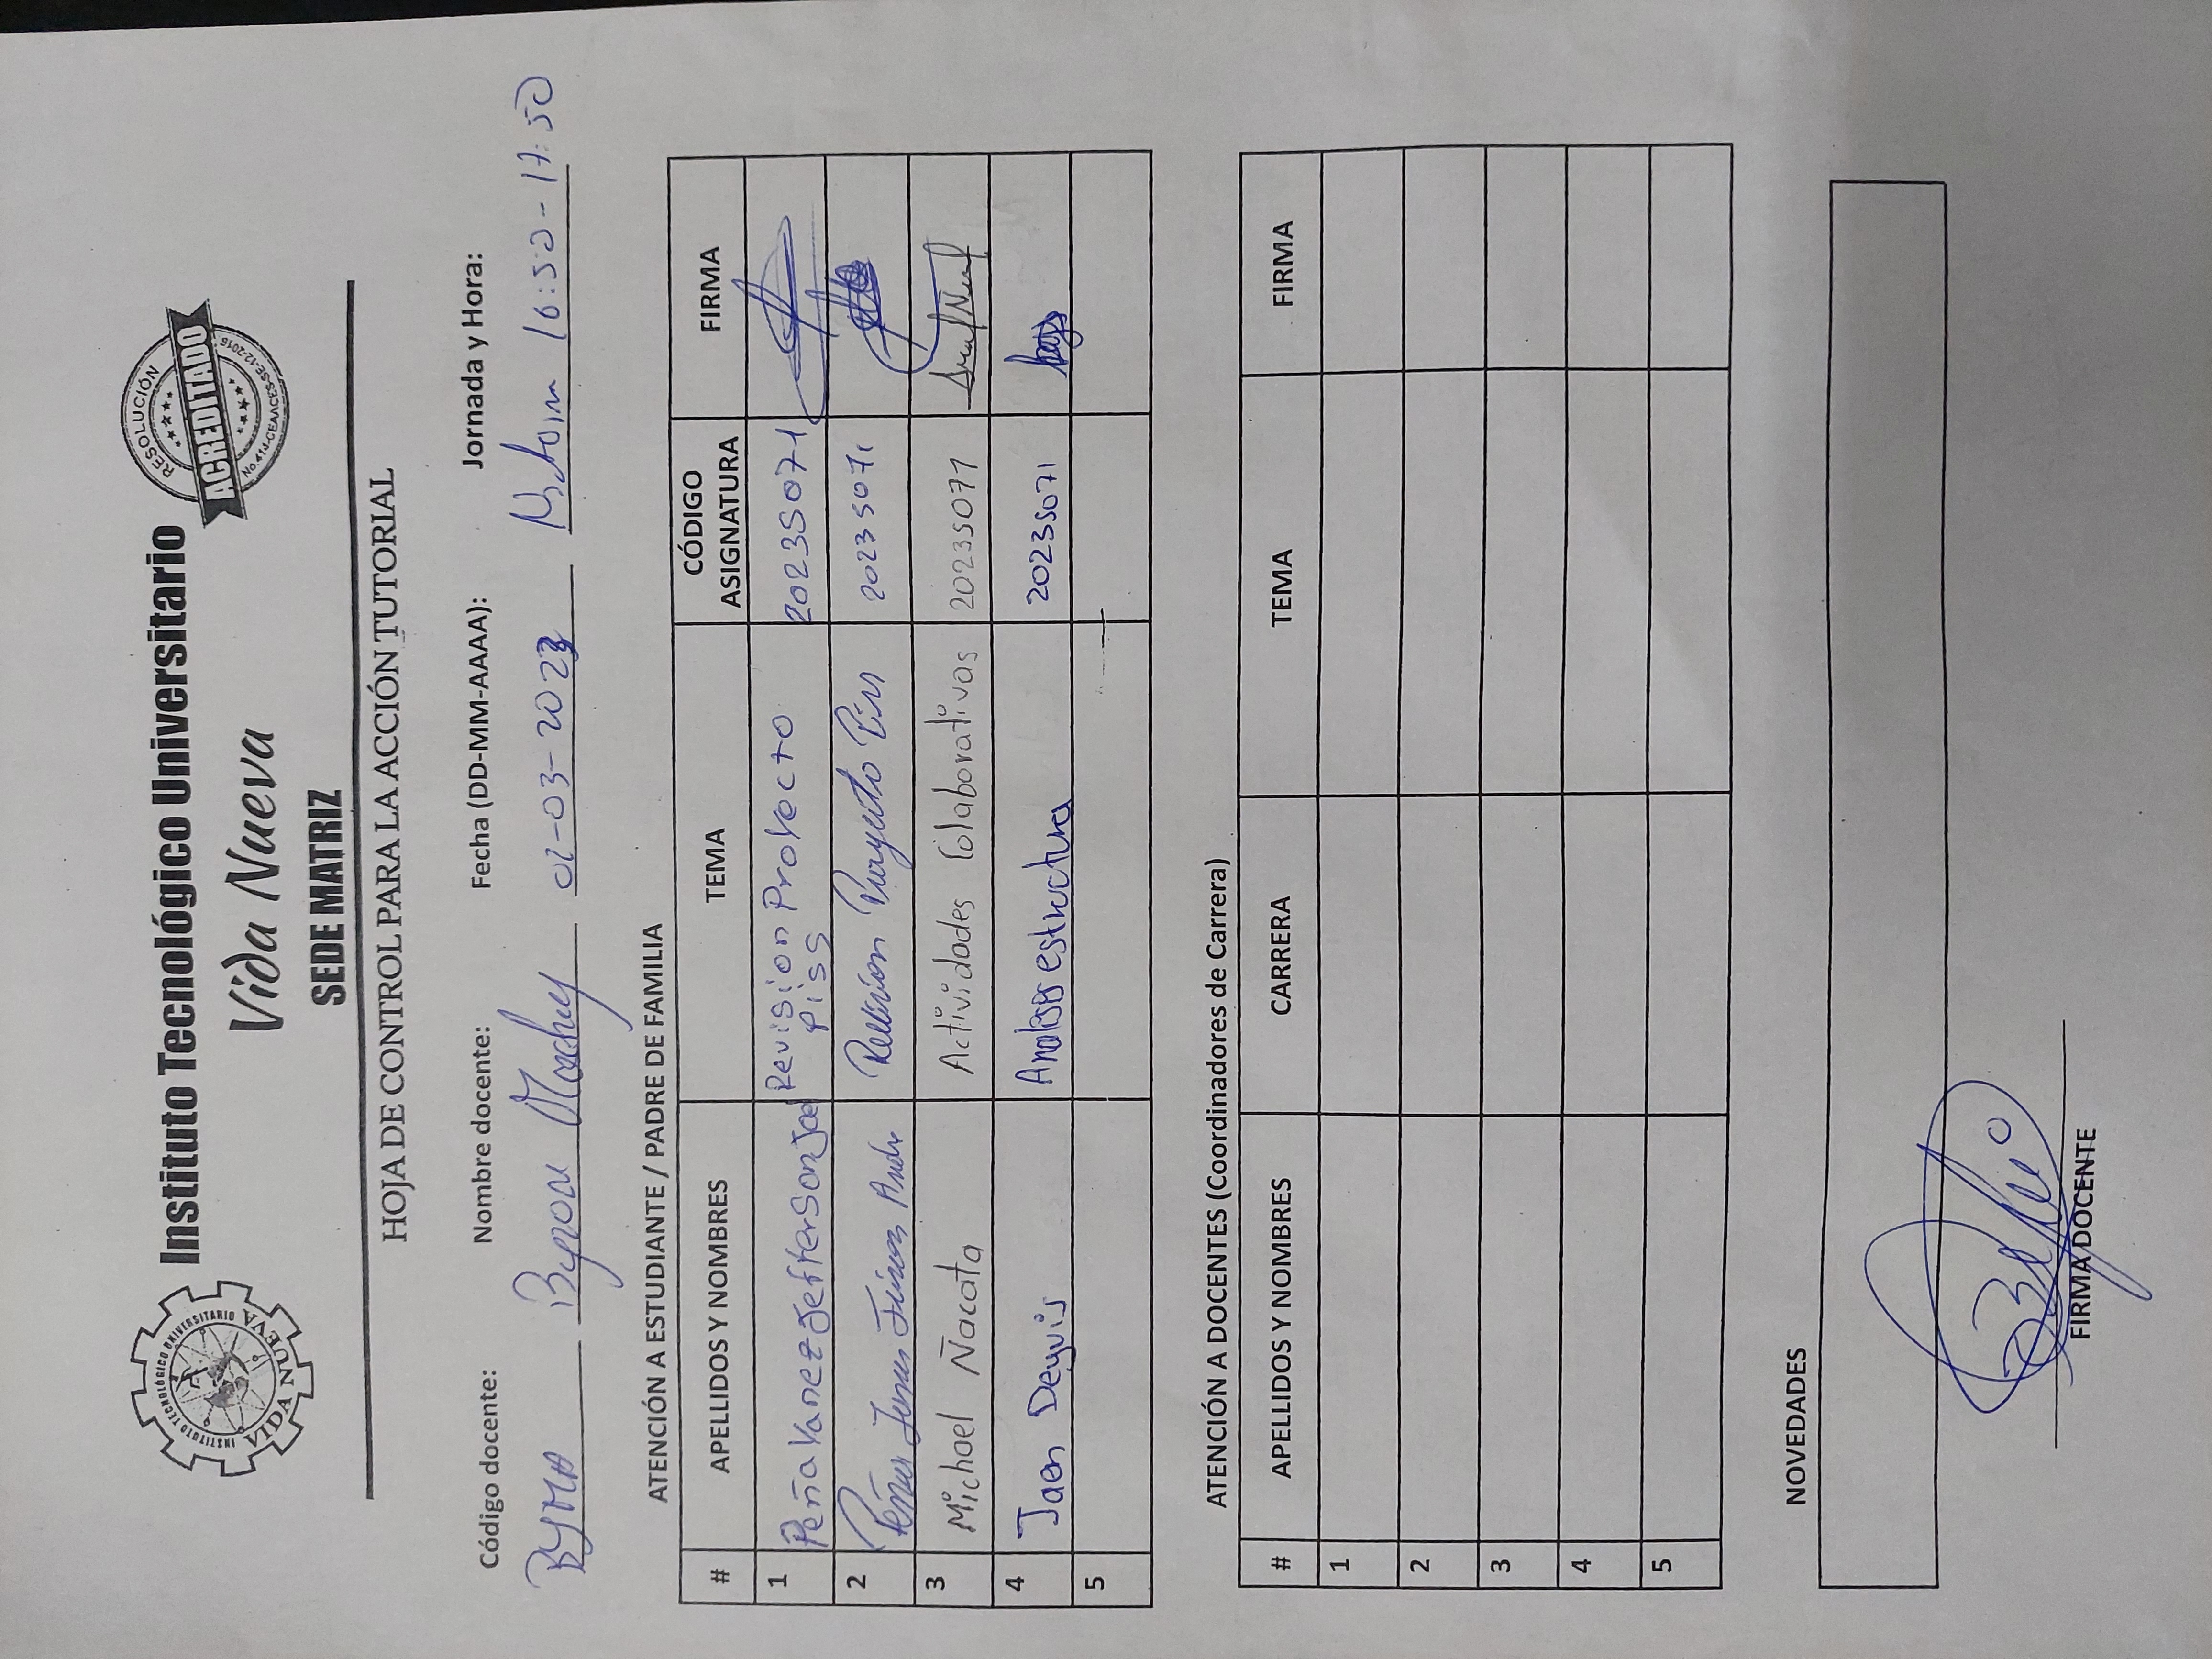 INSTITUTO TECNOLÓGICO UNIVERSITARIO
VIDA NUEVA
Instituto Tecnológico Universitario
Vida Nueva
SEDE MATRIZ
RESOLUCIÓN
ACREDITADO
No.414-CEAACES-SE-12-2016
HOJA DE CONTROL PARA LA ACCIÓN TUTORIAL
Código docente: Nombre docente: Fecha (DD-MM-AAAA): Jornada y Hora:
BYMA Byron 02-03-2023 16:50-17:50
ATENCIÓN A ESTUDIANTE / PADRE DE FAMILIA
# APELLIDOS Y NOMBRES TEMA CÓDIGO ASIGNATURA FIRMA
1 Peña Yanez Jefferson Joel Revision Proyecto Piss 2023S071
2 Revision Proyecto 2023S071
3 Michael Ñacata Actividades Colaborativas 2023S071
4 Jaen Deyvis estructura 2023S071
5
ATENCIÓN A DOCENTES (Coordinadores de Carrera)
# APELLIDOS Y NOMBRES CARRERA TEMA FIRMA
1
2
3
4
5
NOVEDADES
FIRMA DOCENTE